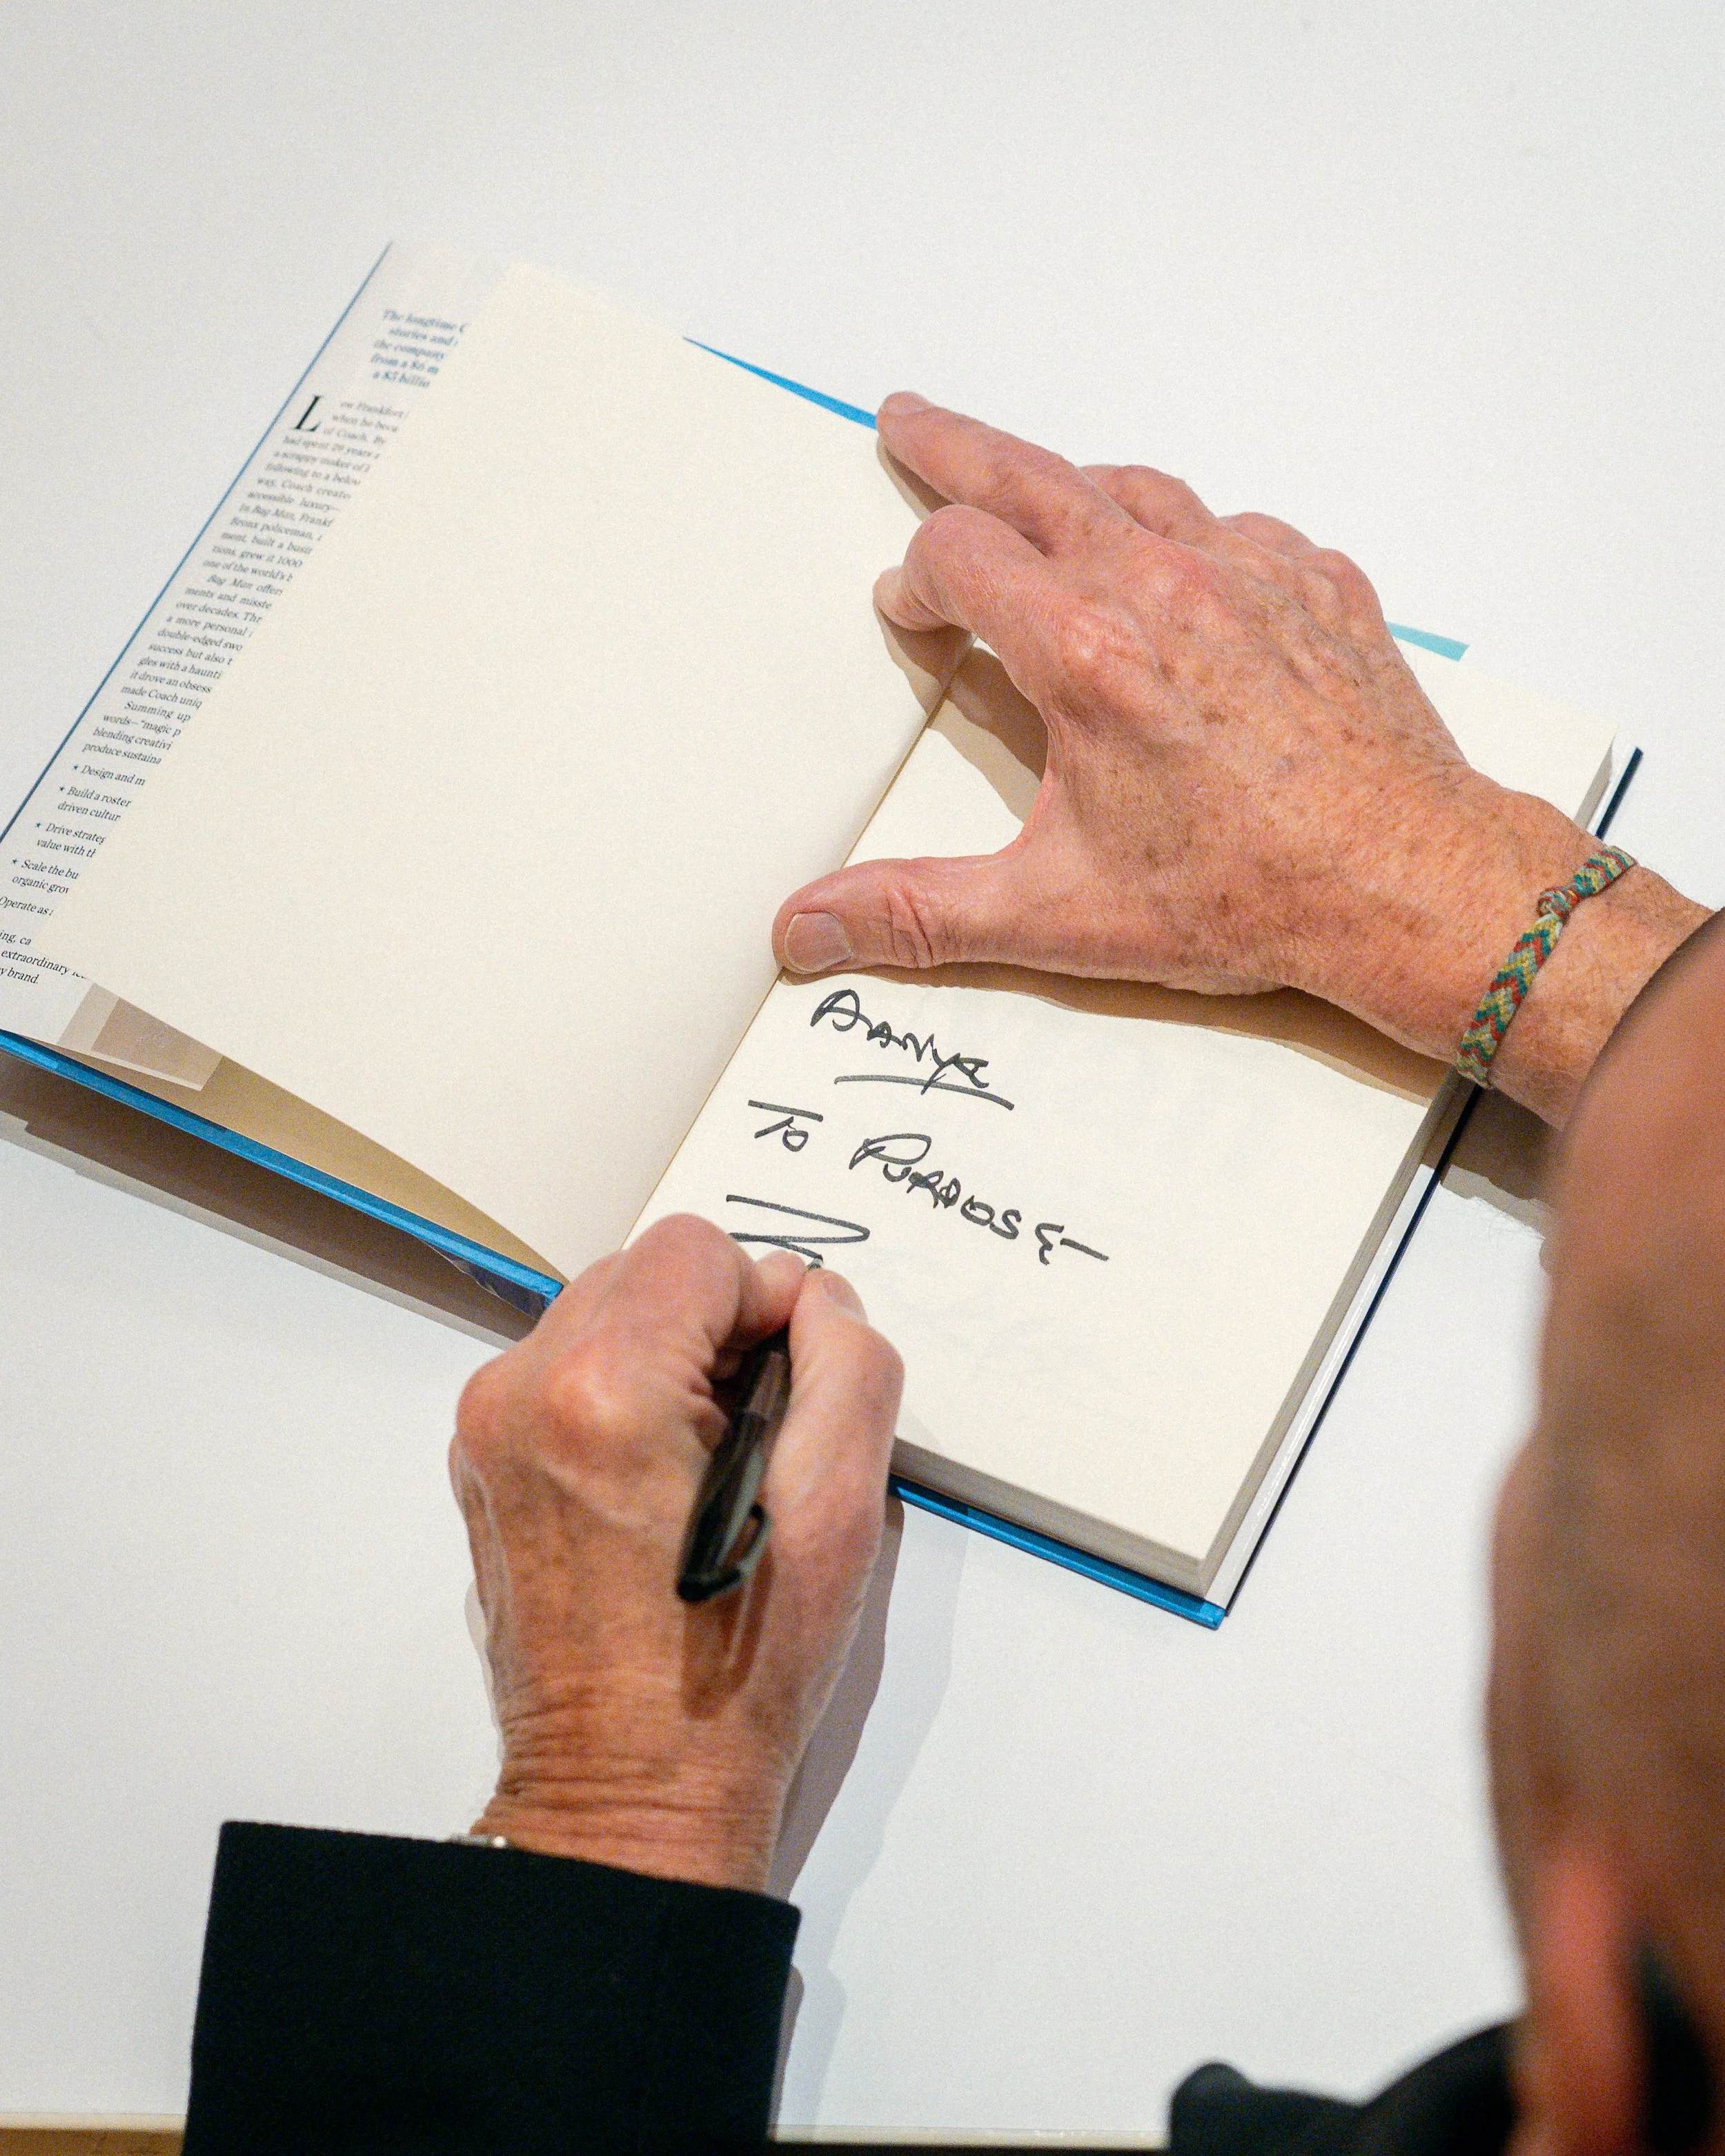 The longtime C
stories and
the company
from a $6 m
a $5 billio
Lew Frankfort
when he beca
of Coach. By
had spent 29 years a
a scrappy maker of l
following to a below
way, Coach create
accessible luxury—
In Bag Man, Frankf
Bronx policeman,
ment, built a busin
tions, grew it 1000
one of the world's b
Bag Man offer
ments and misste
over decades. Thr
a more personal
double-edged swo
success but also t
gles with a haunti
it drove an obsess
made Coach uniq
Summing up
words—"magic p
blending creativi
produce sustaina
★ Design and m
★ Build a roster
driven cultur
★ Drive strateg
value with th
★ Scale the bu
organic grow
Operate as
ing, ca
extraordinary
y brand.
AANYA
TO PURPOSE—